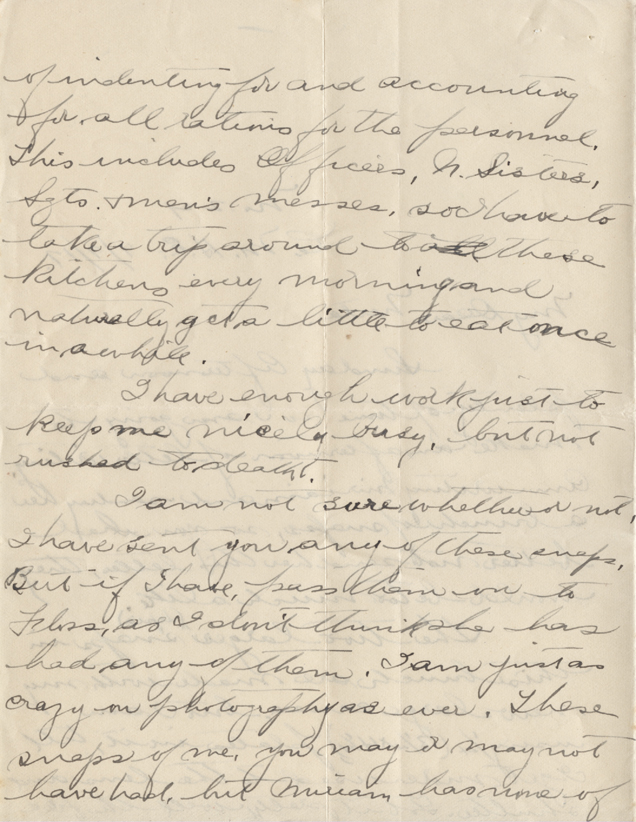 of indenting for and accounting
for all rations for the personnel.
This includes Officers, N. Sisters,
Sgts. + men's messes, so I have to
take a trip around to all these
kitchens every morning and
naturally get a little to eat once
in a while.
I have enough work just to
keep me nicely busy, but not
rushed to death.
I am not sure whether or not,
I have sent you any of these snaps,
But if I have, pass them on to
Floss, as I don't think she has
had any of them. I am just as
crazy on photography as ever. These
snaps of me, you may or may not
have had, but Miriam has none of